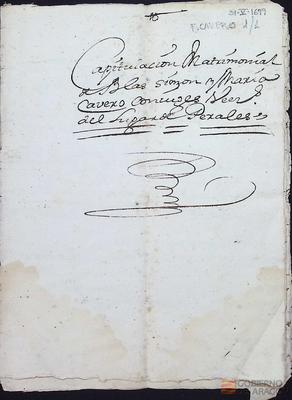 31-V-1699
F. CAVERO 1/1
Capitulación Matrimonial
de Blas simon y Maria
Cavero Conyuges
del Lugar de Perales
GOBIERNO
DE ARAGON